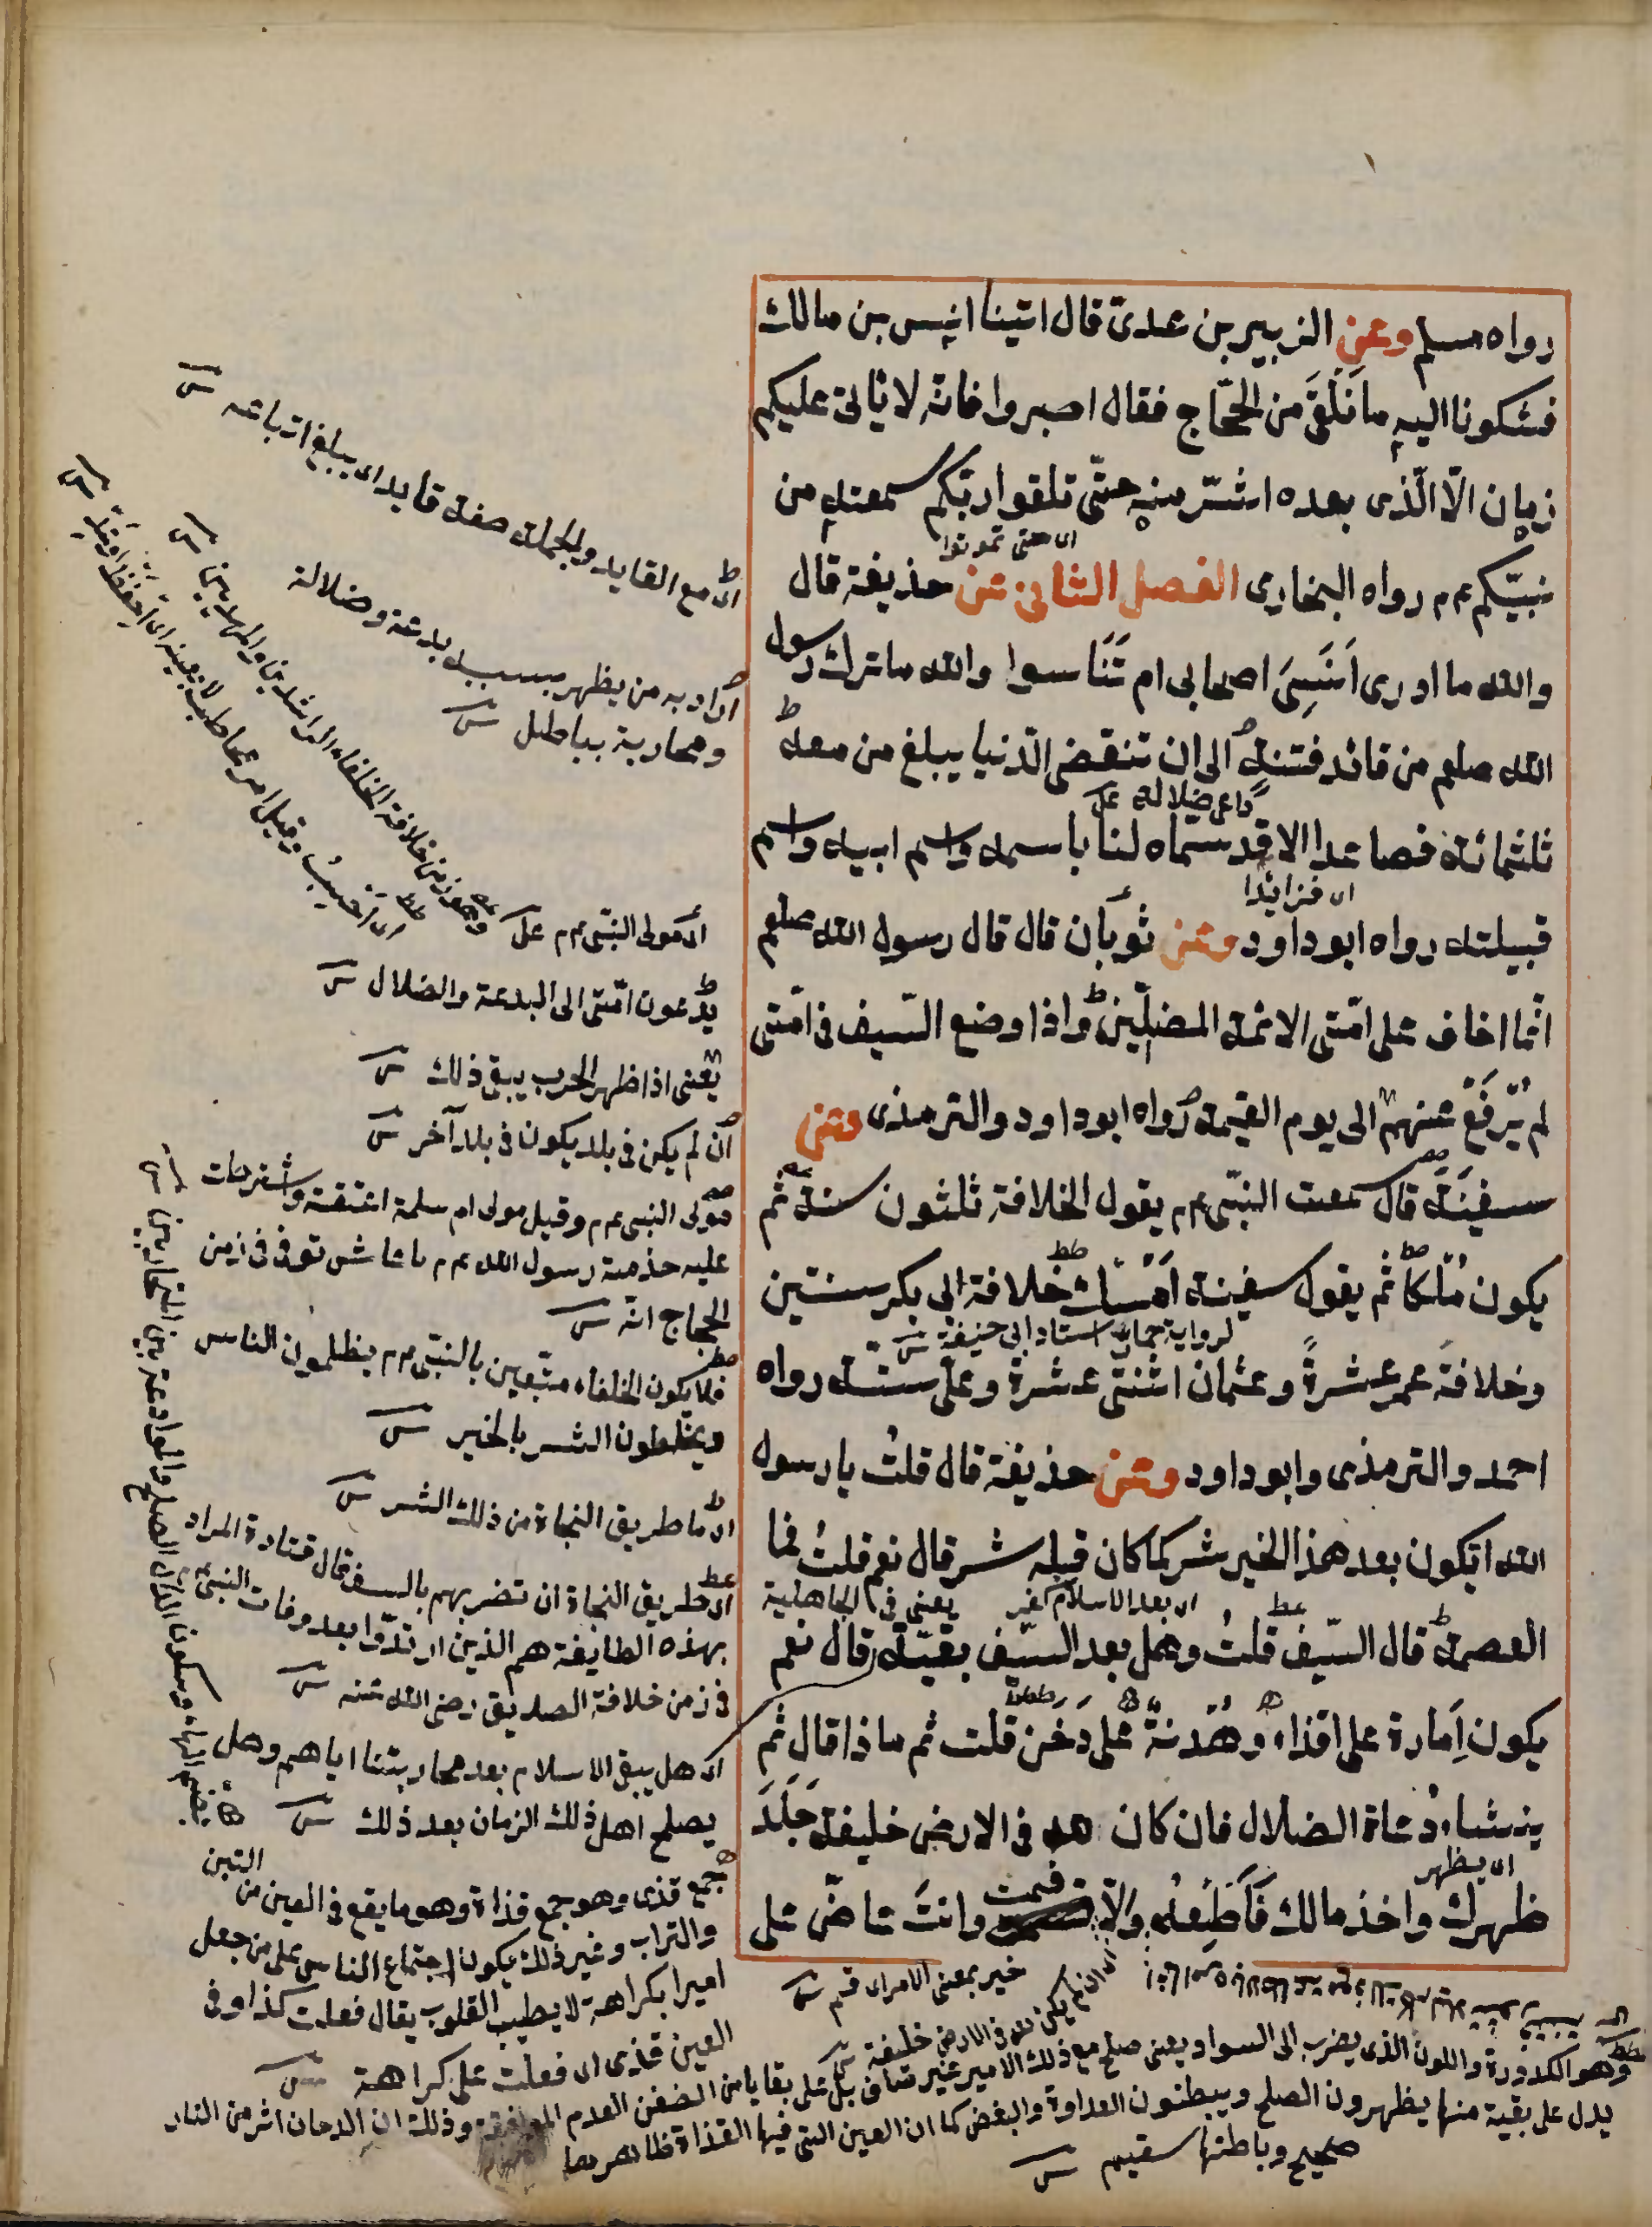 رواه مسلم وعن الزبير بن عدى قال اتينا انس بن مالك
فشكونا اليه ما نلقى من الحجاج فقال اصبروا فانه لا ياتى عليكم
زمان الا الذى بعده اشر منه حتى تلقوا ربكم سمعته من
اى حتى تموتوا
نبيكم عم رواه البخارى الفصل الثانى عن حذيفة قال
والله ما ادرى انسى اصحابى ام تناسوا والله ما ترك رسول
الله صلعم من قائد فتنة الى ان تنقضى الدنيا يبلغ من معه
داعى ضلالة
ثلثمائة فصاعدا الا قد سماه لنا باسمه واسم ابيه واسم
اى فزائدا
قبيلته رواه ابو داود وعن ثوبان قال قال رسول الله صلعم
انما اخاف على امتى الائمة المضلين واذا وضع السيف فى امتى
لم يرفع عنهم الى يوم القيمة رواه ابو داود والترمذى وعن
سفينة قال سمعت النبى عم يقول الخلافة ثلثون سنة ثم
يكون ملكا ثم يقول سفينة امسك خلافة ابى بكر سنتين
لرواية حماد استاد ابى حنيفة
وخلافة عمر عشرة وعثمان اثنتى عشرة وعلى ستة رواه
احمد والترمذى وابو داود وعن حذيفة قال قلت يا رسول
الله ايكون بعد هذا الخير شر كما كان قبله شر قال نعم قلت فما
اى بعد الاسلام كفر يعنى فى الجاهلية
العصمة قال السيف قلت وهل بعد السيف بقية قال نعم
يكون امارة على اقذاء وهدنة على دخن قلت ثم ماذا قال ثم
ينشاء دعاة الضلال فان كان لله فى الارض خليفة جلد
اى يظهر
ظهرك واخذ مالك فاطعه والا فمت وانت عاض على
اى مع القايد والجملة صفة قايد اى يبلغ اتباعه
اراد به من يظهر بسببه بدعة وضلالة
ومحاربة بباطل
اى مولى النبى عم
وهو زمن خلافة الخلفاء الراشدين والمهديين
يدعون امتى الى البدعة والضلال
يعنى اذا ظهر الحرب يبقى ذلك
ان لم يكن فى بلد يكون فى بلد آخر
مولى النبى عم وقيل مولى ام سلمة اعتقته وشرطت
عليه خدمة رسول الله عم ما عاش توفى فى زمن
الحجاج
فلا يكون الخلفاء متبعين بالنبى عم يظلمون الناس
ويخلطون الشر بالخير
اى ما طريق النجاة من ذلك الشر
اى طريق النجاة ان تضربهم بالسيف قال قتادة المراد
بهذه الطايفة هم الذين ارتدوا بعد وفات النبى عم
فى زمن خلافة الصديق رضى الله عنه
اى هل يبقى الاسلام بعد محاربتنا اياهم وهل
يصلح اهل ذلك الزمان بعد ذلك
جمع قذى وهو جمع قذاة وهو ما يقع فى العين من التبن
والتراب وغير ذلك يكون اجتماع الناس على من جعل
اميرا بكراهة لا بطيب القلوب يقال فعلت كذا وفى
العين قذى اى فعلت على كراهة
خبر بمعنى الامر اى قم
اى ان لم يكن لله فى الارض خليفة
وهو الكدورة واللون الذى يضرب الى السواد يعنى صلح مع ذلك الامير غير صاف بل على بقايا من الضغن
يدل على بقية منها يظهرون الصلح ويبطنون العداوة والبغض كما ان العين التى فيها القذاة ظاهرها
صحيح وباطنها سقيم